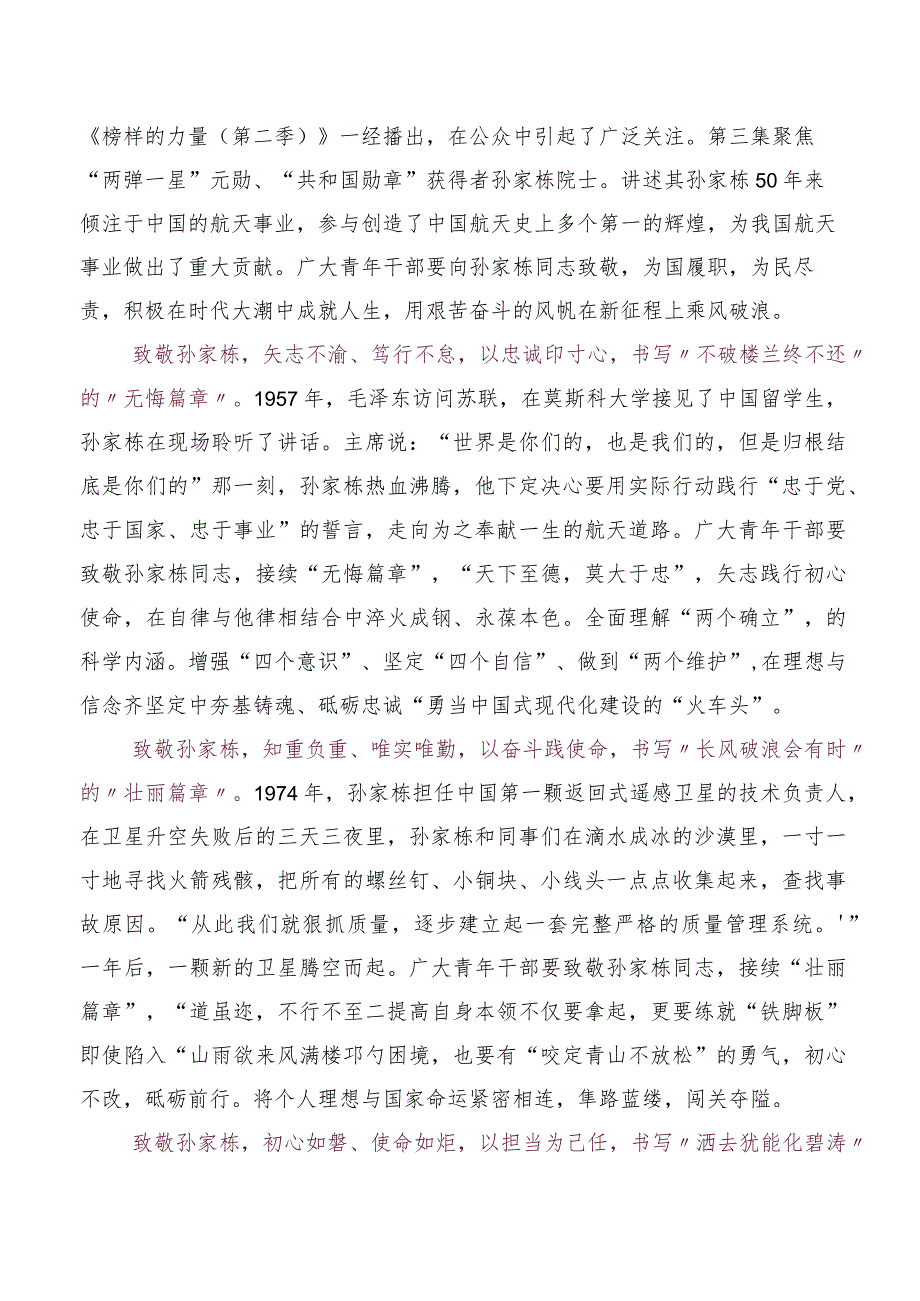 《榜样的力量（第二季）》一经播出，在公众中引起了广泛关注。第三集聚焦
“两弹一星”元勋、“共和国勋章”获得者孙家栋院士。讲述其孙家栋50年来
倾注于中国的航天事业，参与创造了中国航天史上多个第一的辉煌，为我国航天
事业做出了重大贡献。广大青年干部要向孙家栋同志致敬，为国履职，为民尽
责，积极在时代大潮中成就人生，用艰苦奋斗的风帆在新征程上乘风破浪。
致敬孙家栋，矢志不渝、笃行不怠，以忠诚印寸心，书写〃不破楼兰终不还〃
的〃无悔篇章〃。1957年，毛泽东访问苏联，在莫斯科大学接见了中国留学生，
孙家栋在现场聆听了讲话。主席说：“世界是你们的，也是我们的，但是归根结
底是你们的”那一刻，孙家栋热血沸腾，他下定决心要用实际行动践行“忠于党、
忠于国家、忠于事业”的誓言，走向为之奉献一生的航天道路。广大青年干部要
致敬孙家栋同志，接续“无悔篇章”，“天下至德，莫大于忠”，矢志践行初心
使命，在自律与他律相结合中淬火成钢、永葆本色。全面理解“两个确立”，的
科学内涵。增强“四个意识”、坚定“四个自信”、做到“两个维护”,在理想与
信念齐坚定中夯基铸魂、砥砺忠诚“勇当中国式现代化建设的“火车头”。
致敬孙家栋，知重负重、唯实唯勤，以奋斗践使命，书写〃长风破浪会有时〃
的〃壮丽篇章〃。1974年，孙家栋担任中国第一颗返回式遥感卫星的技术负责人，
在卫星升空失败后的三天三夜里，孙家栋和同事们在滴水成冰的沙漠里，一寸一
寸地寻找火箭残骸，把所有的螺丝钉、小铜块、小线头一点点收集起来，查找事
故原因。“从此我们就狠抓质量，逐步建立起一套完整严格的质量管理系统。'”
一年后，一颗新的卫星腾空而起。广大青年干部要致敬孙家栋同志，接续“壮丽
篇章”，“道虽迩，不行不至二提高自身本领不仅要拿起，更要练就“铁脚板”
即使陷入“山雨欲来风满楼邛勺困境，也要有“咬定青山不放松”的勇气，初心
不改，砥砺前行。将个人理想与国家命运紧密相连，隼路蓝缕，闯关夺隘。
致敬孙家栋，初心如磐、使命如炬，以担当为己任，书写〃洒去犹能化碧涛〃